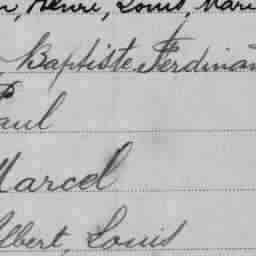 , Henri, Louis, Mari
, Baptiste Ferdinan
Paul
Marcel
Albert, Louis